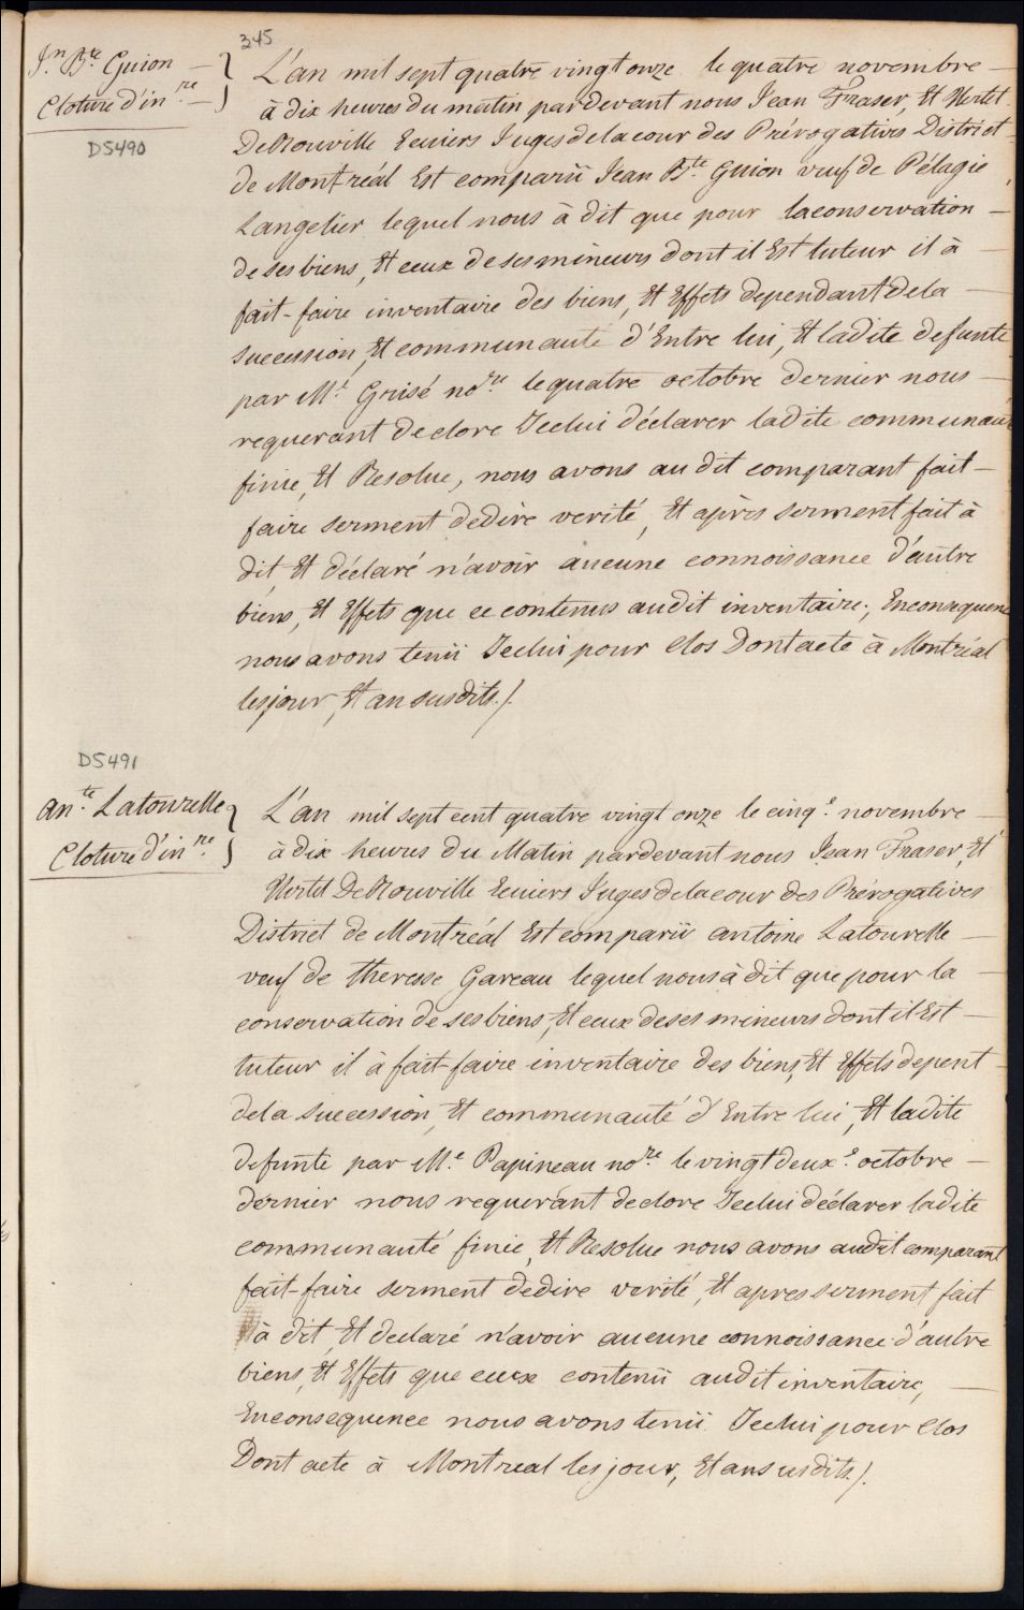 345
Jn. Bte. Guion
Cloture d'in.re
D5490
L'an mil sept quatre vingt onze le quatre novembre
à dix heures du matin pardevant nous Jean Fraser, Et Hertel
De Rouville Ecuiers Juges de la cour des Prérogatives District
de Montréal Est comparü Jean Bte. Guion veuf de Pélagie
Langelier lequel nous à dit que pour la conservation
de ses biens, Et ceux de ses mineurs dont il Est tuteur il à
fait-faire inventaire des biens, Et Effets dependant de la
succession, Et communauté d'Entre lui, Et ladite defunte
par Me. Grisé nore. le quatre octobre dernier nous
requerant de clore Icelui déclarer ladite communau
finie, Et Resolue, nous avons au dit comparant fait-
faire serment de dire verité, Et après serment fait à
dit Et déclaré n'avoir aucune connoissance d'autre
biens, Et Effets que ce contenus audit inventaire; En consequence
nous avons tenü Icelui pour Clos Dont acte à Montréal
les jour, Et an susdits./.
D5491
ante. Latourelle
Cloture d'in.re
L'an mil sept cent quatre vingt onze le cinqe. novembre
à dix heures du Matin pardevant nous Jean Fraser, Et
Hertel De Rouville Ecuiers Juges de la cour des Prérogatives
District de Montréal Est comparü antoine Latourelle
veuf de therese Gareau lequel nous à dit que pour la
conservation de ses biens, Et ceux de ses mineurs dont il Est
tuteur il à fait-faire inventaire des biens, Et Effets depent
de la succession, Et communauté d'Entre lui, Et ladite
defunte par Me. Papineau nore. le vingt deuxe. octobre
dernier nous requerant de clore Icelui déclarer ladite
communauté finie, Et Resolue nous avons audit comparant
fait-faire serment de dire verité, Et apres serment fait
à dit, Et declaré n'avoir aucune connoissance d'autre
biens, Et Effets que ceux contenü audit inventaire,
En consequence nous avons tenü Icelui pour Clos
Dont acte à Montreal les jour, Et an susdits./.